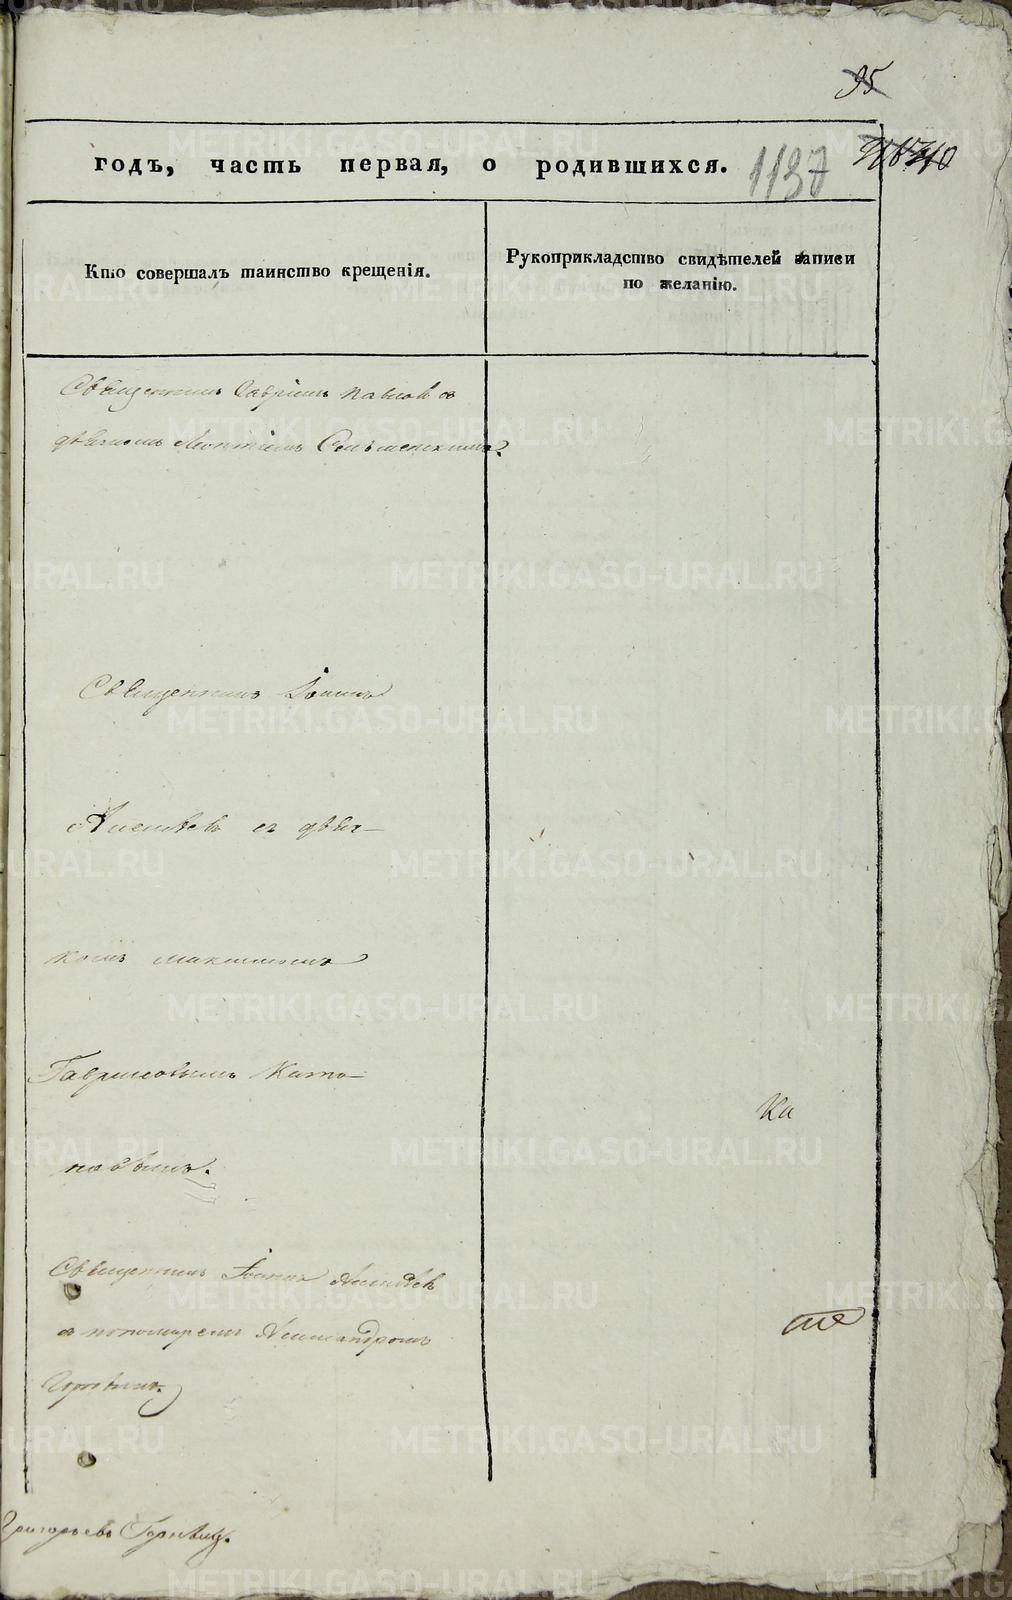 95
годъ, часть первая, о родившихся.
1187
Кто совершалъ таинство крещенія.
Рукоприкладство свидѣтелей записи по желанію.
Священникъ Гавріилъ Павловъ съ
діакономъ Леонтіемъ
Священникъ Іоаннъ
Алексѣевъ съ діа-
кономъ Максимомъ
Гавриловымъ Като-
новымъ.
Ка
Священникъ Іоаннъ Алексѣевъ
съ пономаремъ Александромъ
Григорьевъ
METRIKI.GASO-URAL.RU